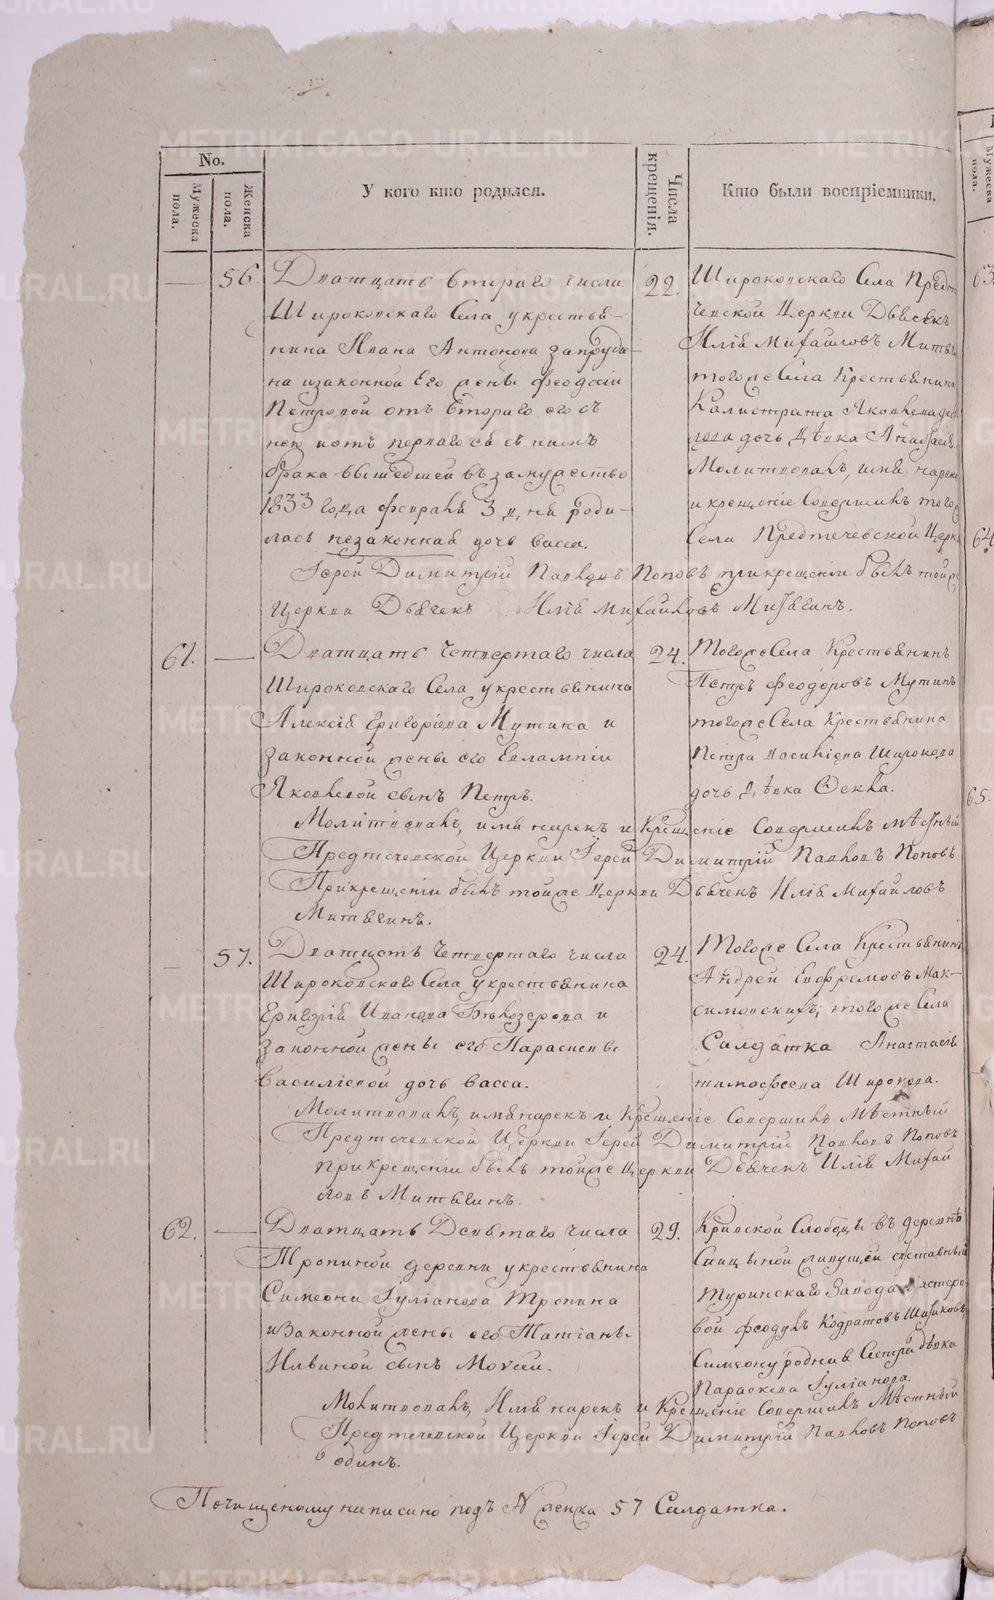 No.
Мужеска пола.
Женска пола.
У кого кто родился.
Числа крещенія.
Кто были воспріемники.
56.
Дватцать втораго числа
Широковскаго Села укрестья-
нина Ивана Антонова запруди-
на изаконной Его жены Феодосіи
Петровой отъ втораго его съ
нею иотъ перваго ея съ нимъ
брака вышедшей въ замужество
1833 года февраля 3 дня роди-
лась незаконная дочь Васса.
22.
Широковскаго Села Предте
чевской Церкви Дьячекъ
Илія Михайловъ Митяги
тогоже Села Крестьянина
Калистрата Яковлева
дочь Дѣвка
Молитвовалъ, имя нарекъ
и крещеніе Совершилъ того
Села Предтечевской Церк
Іерей Димитрій Павловъ Поповъ прикрещеніи былъ тойже
Церкви Дьячекъ Илія Михайловъ Митягинъ.
61.
Дватцать Четвертаго числа
Широковскаго Села укрестьянина
Алексія Григоріева Мутина и
законной жены его Евлампіи
Яковлевой сынъ Петръ.
24.
Тогоже Села Крестьянинъ
Петръ Феодоровъ Мутинъ
тогоже Села Крестьянина
Петра Широкова
дочь Дѣвка Фекла.
Молитвовалъ, имя нарекъ и Крещеніе Совершилъ мѣстный
Предтечевской Церкви Іерей Димитрій Павловъ Поповъ
Прикрещеніи былъ тойже Церкви Дьячекъ Илія Михайловъ
Митягинъ.
57.
Дватцать Четвертаго числа
Широковскаго Села укрестьянина
Григорія Иванова Бѣлозерова и
Законной жены его Параскевы
Василіевой дочь Васса.
24.
Тогоже Села Крестьянинъ
Андрей Ефремовъ Мак-
симовскихъ, тогоже Села
Салдатка Анастасія
тимофеева Широкова.
Молитвовалъ, имя нарекъ и Крещеніе Совершилъ Мѣстный
Предтечевской Церкви Іерей Димитрій Павловъ Поповъ
прикрещеніи былъ тойже церкви Дьячекъ Илія Михай
ловъ Митягинъ.
62.
Дватцать Девятаго числа
Тропиной деревни укрестьянина
Симеона Іуліанова Тропина
изаконной жены его Татіаны
Ильиной сынъ Моисей.
29.
Кривской Слободы въ деревнѣ
Синцыной живущей отставный
Туринскаго Завода мастеро
вой Феодулъ Кодратовъ
Симеону родная Сестра дѣвка
Параскева Іуліанова.
Молитвовалъ, Имя нарекъ и Крещеніе Совершилъ Мѣстный
Предтечевской Церкви Іерей Димитрій Павловъ Поповъ
одинъ.
Почищеному написано подъ N женска 57 Салдатка.
63.
64.
65.
Мужеска пола.
METRIKI.GASO-URAL.RU